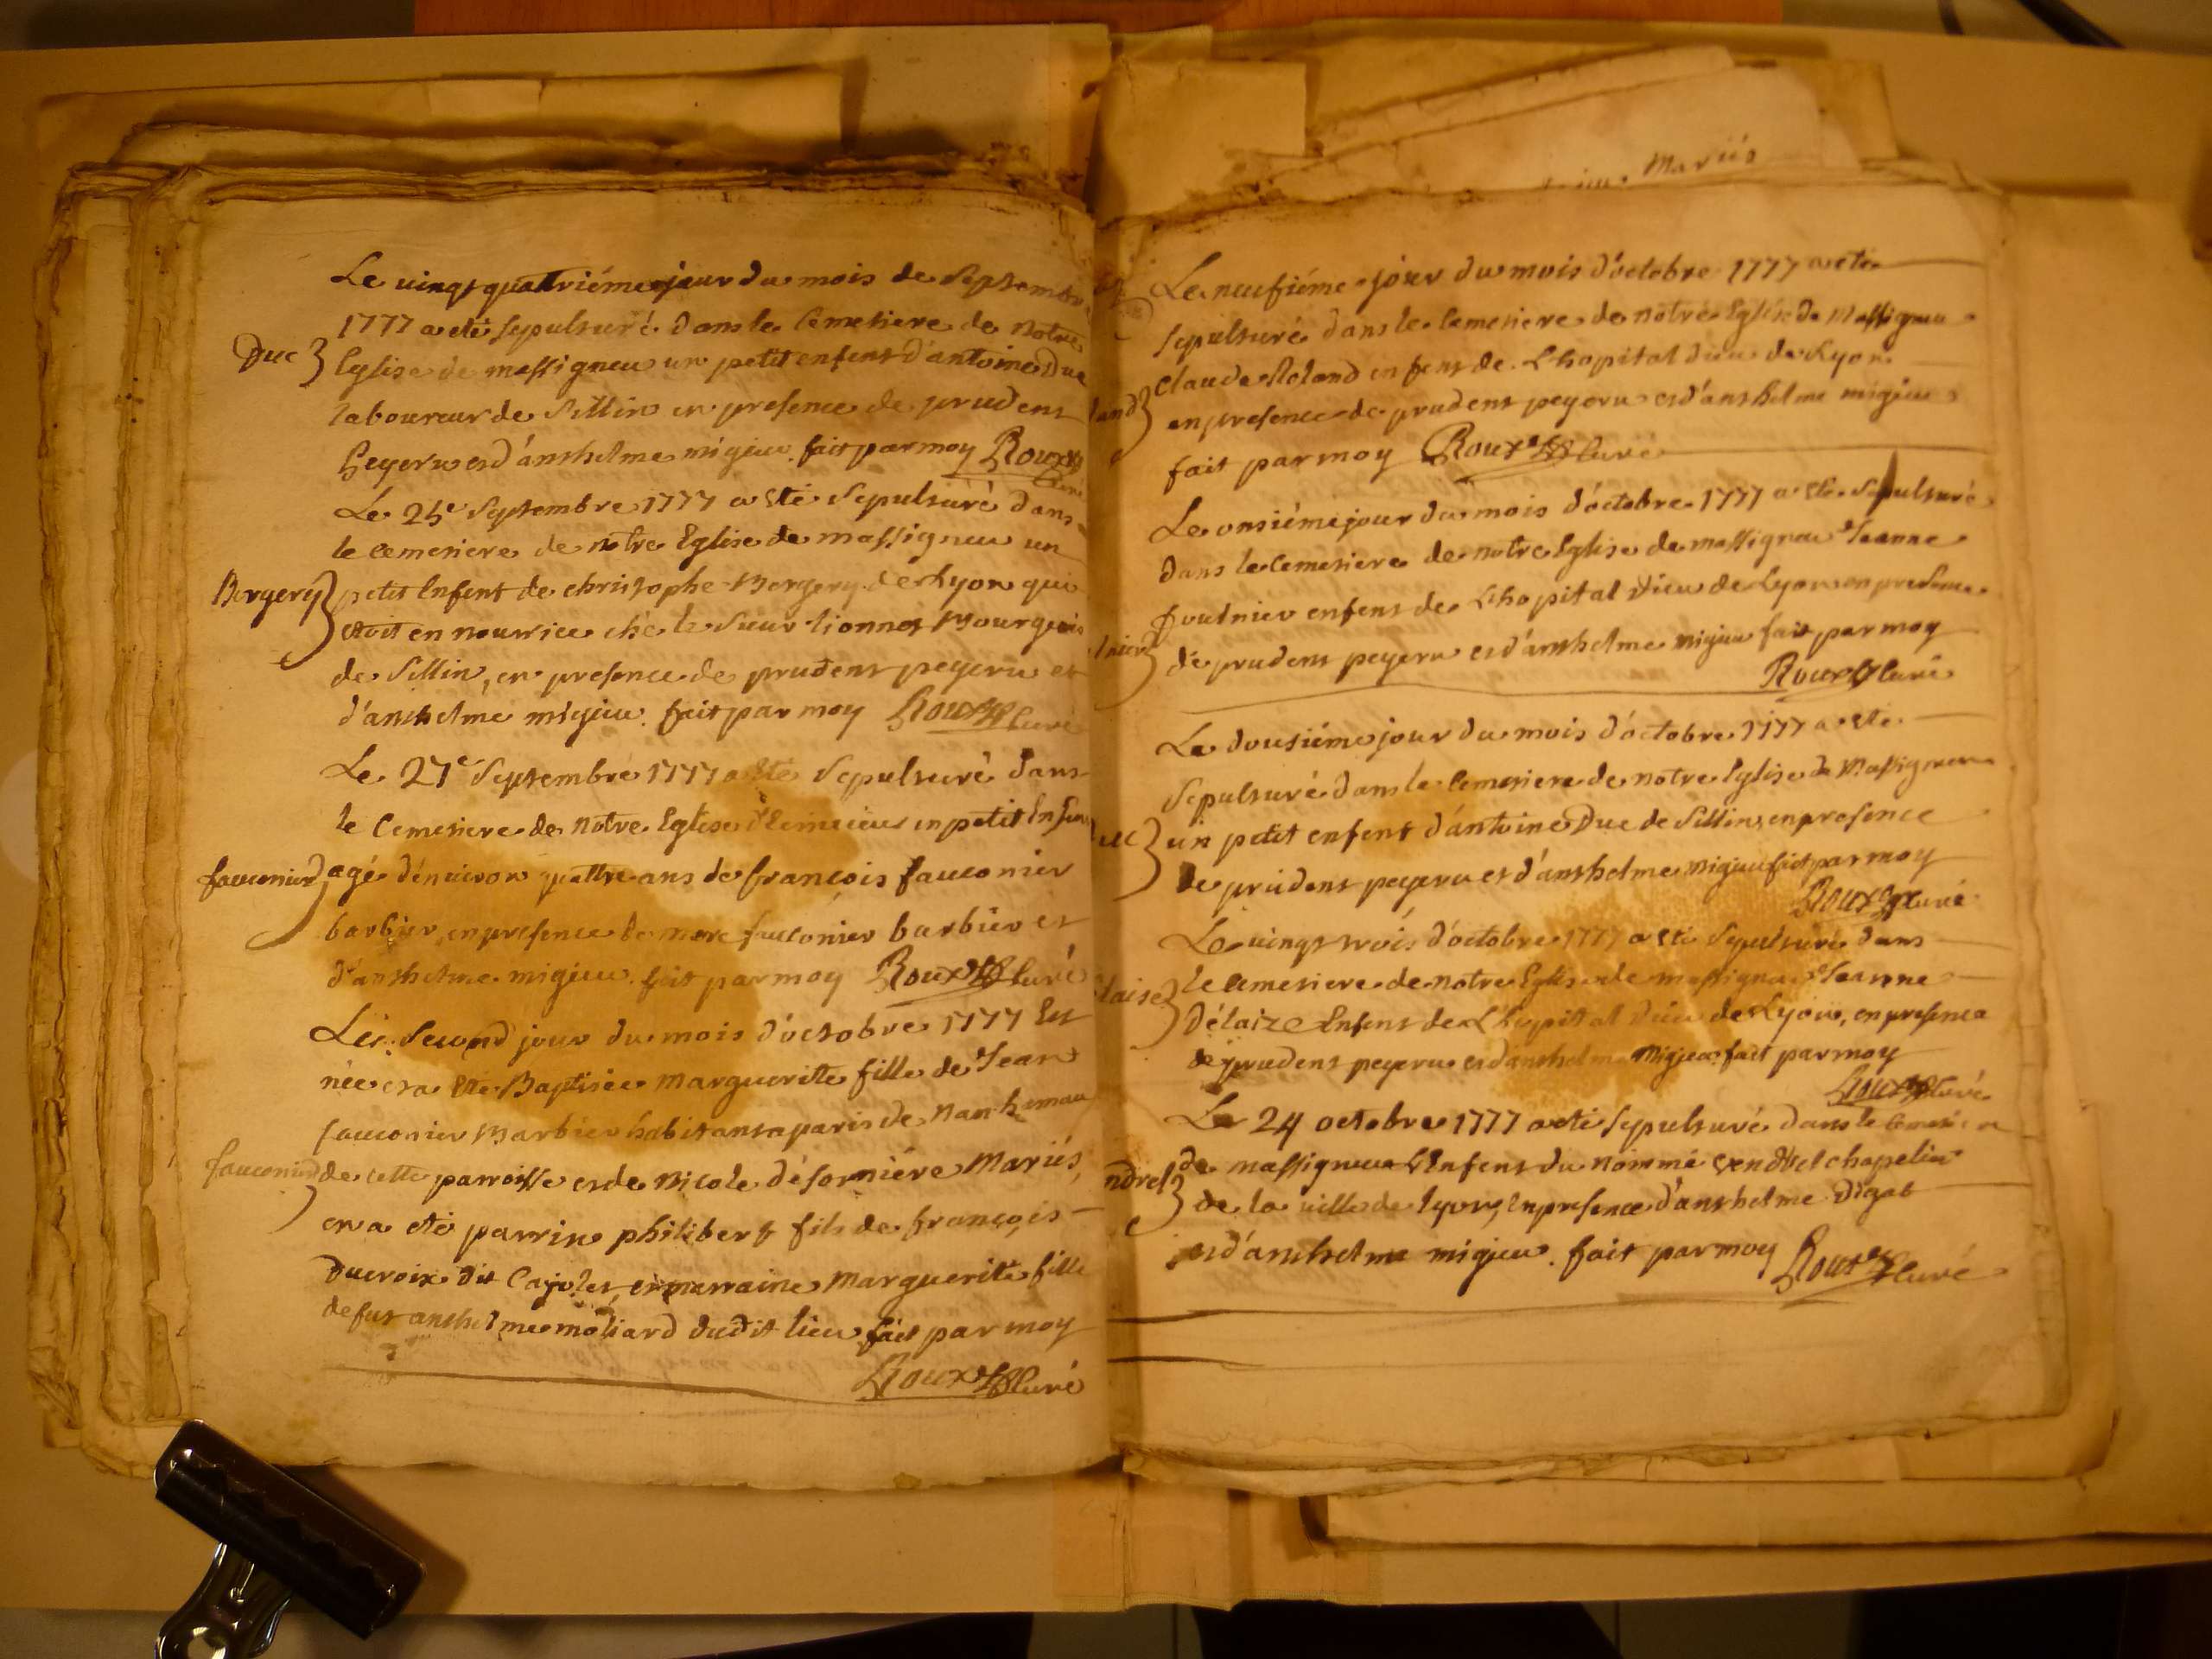 Le vingt quatriéme jour du mois de Septembre
1777 a eté sepulturé dans le Cemetiere de notre
Duc
Eglise de massigneu un petit enfent d'antoine Duc
laboureur de Sillin en presence de prudent
peyeru et d'anthelme migieu. fait par moy Roux
Curé
Le 25e Septembre 1777 a eté Sepulturé dans
le cemetiere de notre Eglise de massigneu un
Bergery
petit Enfent de christophe Bergery de Lyon qui
etoit en nourrice ché le Sieur lionnet Bourgeois
de Sillin, en presence de prudent peyeru et
d'anthelme migieu. fait par moy Roux Curé
Le 27e Septembre 1777 a eté Sepulturé dans
le Cemetiere de notre Eglise un petit Enfent
fauconier
agé d'enviror quattre ans de françois fauconier
barbier, en presence de marc fauconier barbier et
d'anthelme migieu. fait par moy Roux Curé
Le Second jour du mois d'octobre 1777 Est
née et a eté Baptisée marguerite fille de Jean
fauconier Barbier habitant a paris de
fauconier
de cette parroisse et de Nicole déforniére Mariés,
en a eté parrin philibert fils de françois
Ducroix dit et marraine marguerite fille
de fut anthelme moliard dudit lieu fait par moy
Roux Curé
Mariés
Le neufiéme jour du mois d'octobre 1777 a eté
sepulturé dans le Cemetiere de notre Eglise de Massigneu
Claude Roland enfent de L'hopital dieu de Lyon
land
en presence de prudent peyeru et d'anthelme migieu
fait par moy Roux Curé
Le onsiéme jour du mois d'octobre 1777 a eté Sepulturé
dans le Cemetiere de notre Eglise de massigneu Jeanne
foulnier enfent de L'hopital Dieu de Lyon en presence
lnier
de prudent peyeru et d'anthelme migieu fait par moy
Roux Curé
Le dousiéme jour du mois d'octobre 1777 a eté
Sepulturé dans le Cemetiere de notre Eglise de Massigneu
uc
un petit enfent d'antoine Duc de Sillin, en presence
de prudent peyeru et d'anthelme migieu fait par moy
Roux Curé
Le vingt trois d'octobre 1777 a eté Sepulturé dans
le Cemetiere de notre Eglise de massigneu Jeanne
laise
Délaize Enfent de L'hopital dieu de Lyon, en presence
de prudent peyeru et d'anthelme Migieu fait par moy
Roux Curé
Le 24 octobre 1777 a eté sepulturé dans le Cemetiere
de massigneu L'Enfent du nommé Vendrel chapelier
ndrel
de la ville de lyon, en presence d'anthelme
et d'anthelme migieu. fait par moy Roux Curé